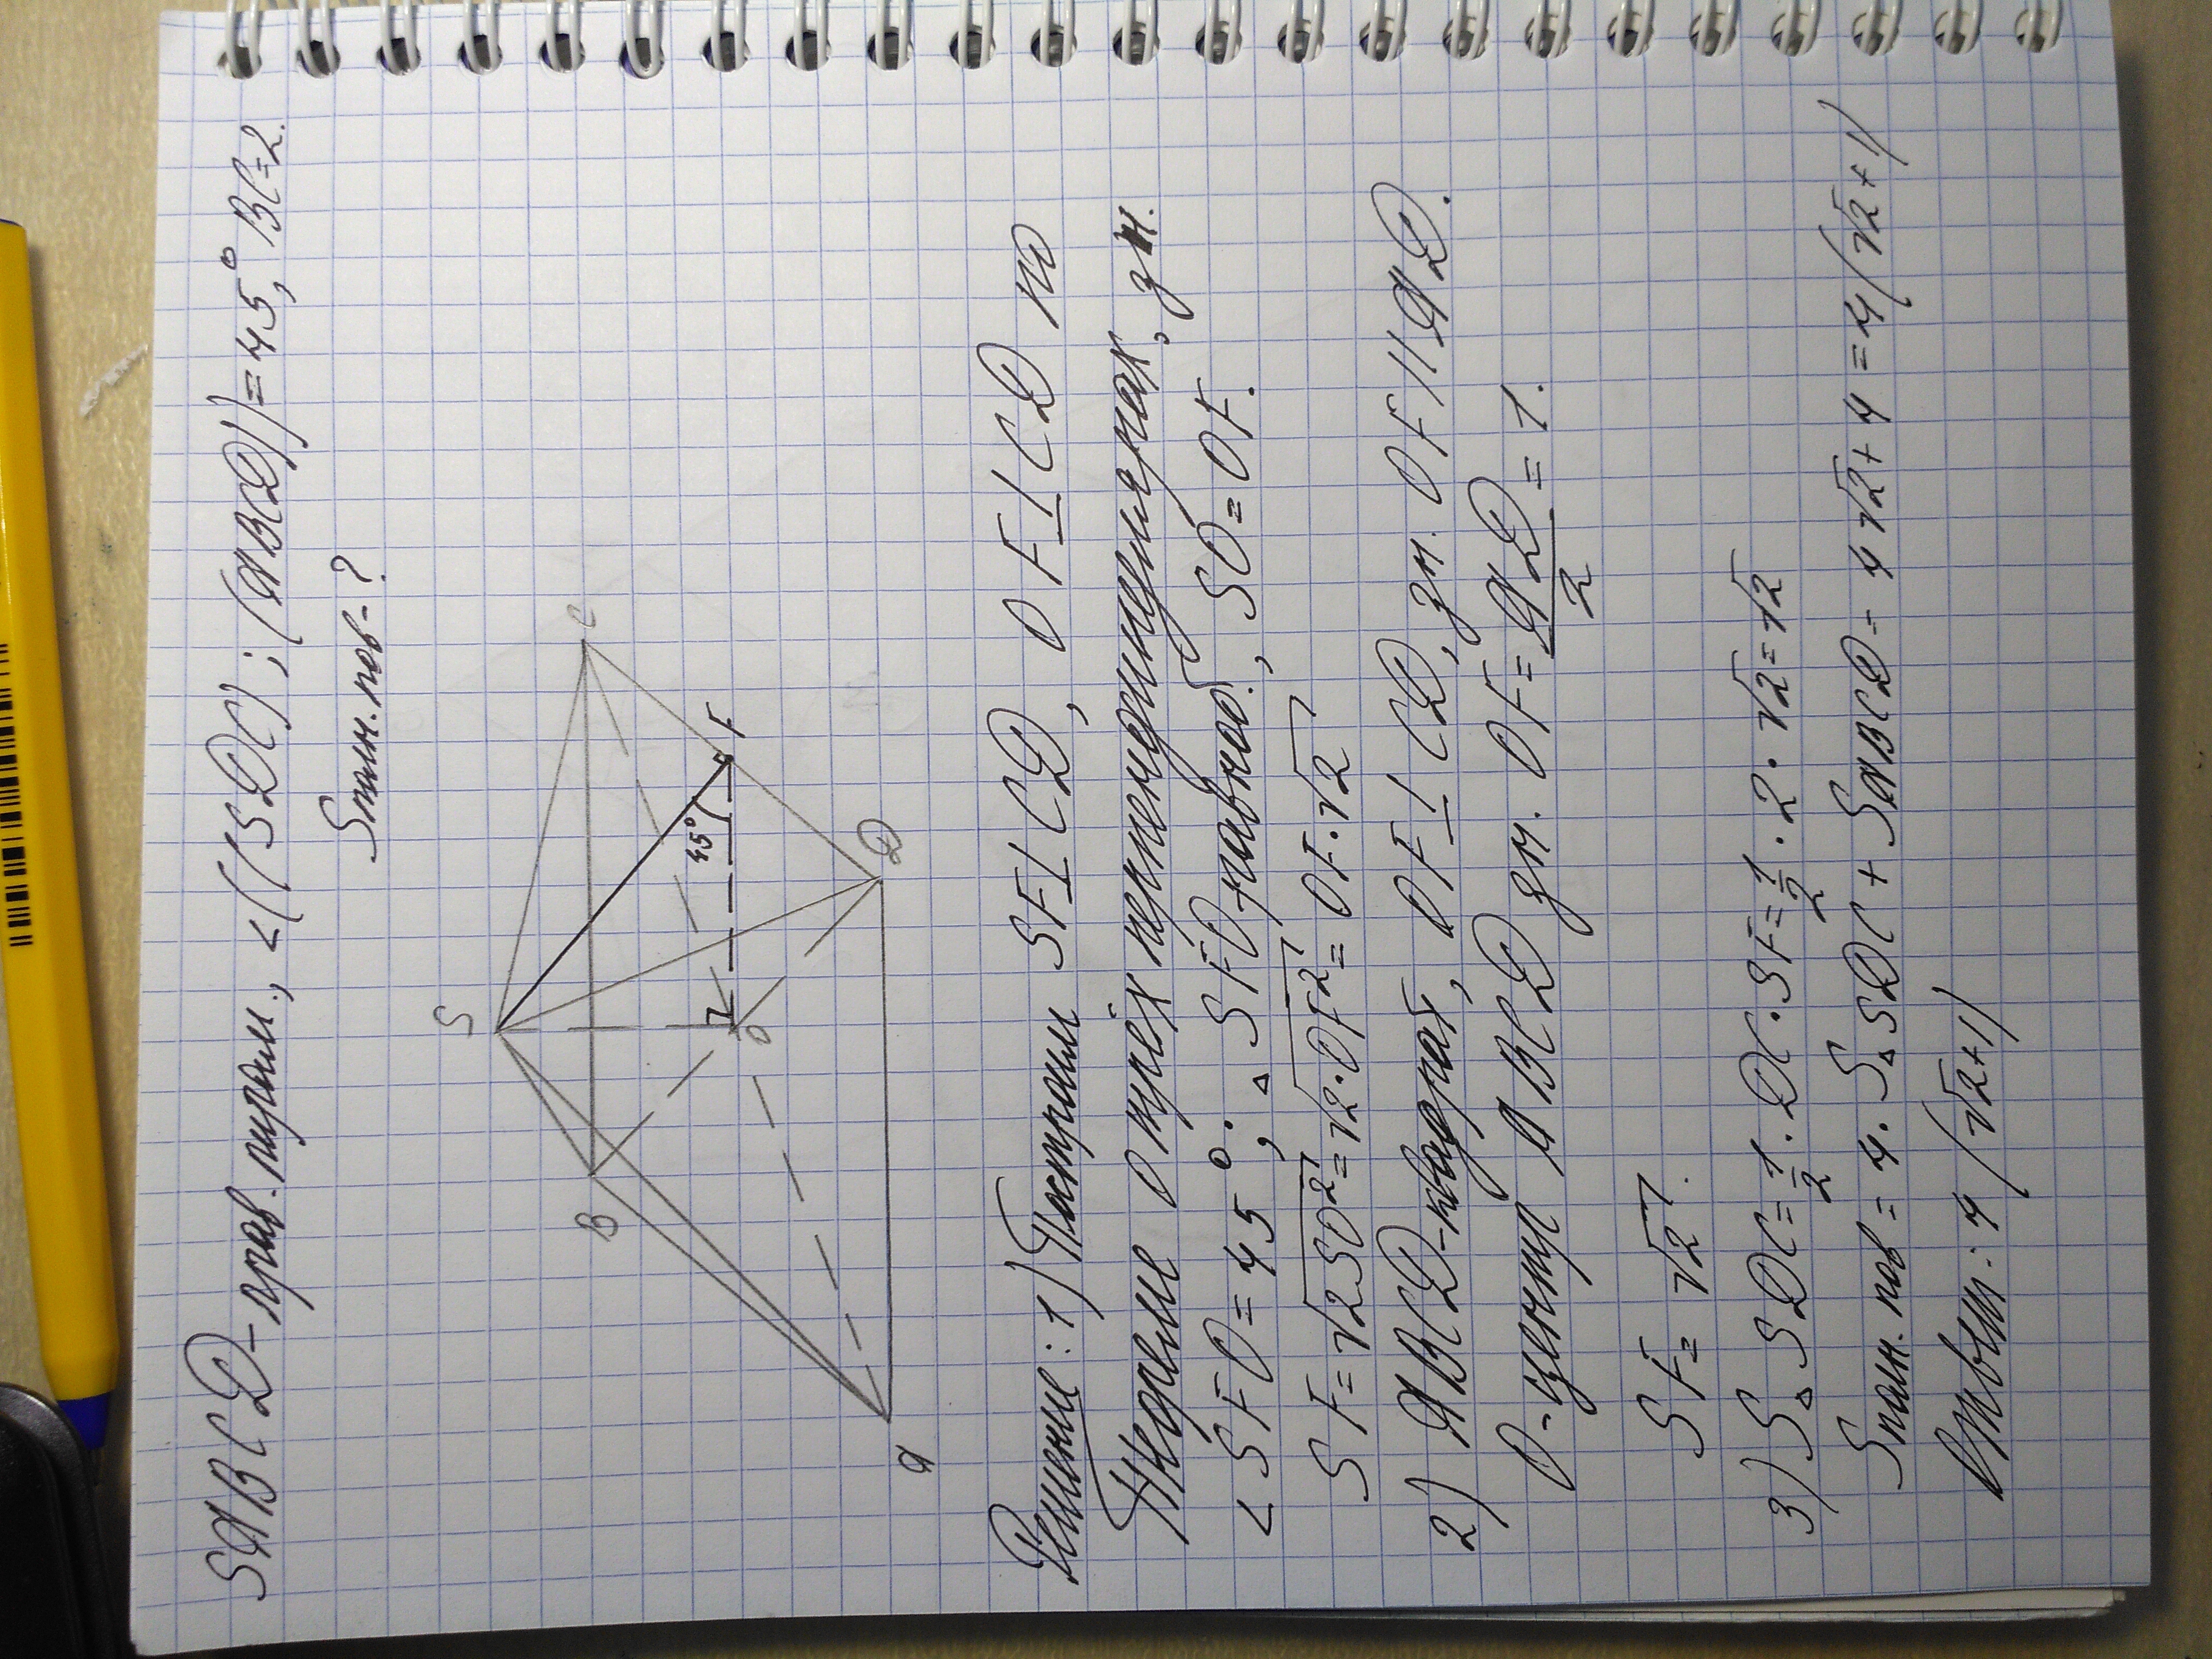 SABCD-прав. пирам., <((SDC); (ABCD))=45°, BC=2.
Sполн. пов-?
S
B
C
45°
F
O
D
A
Решение: 1) Построим SF⊥CD, OF⊥CD по
Теореме о трёх перпендикулярах, зн.
<SFO=45°. △SFO-равноб., SO=OF.
SF=√2SO²=√2·OF²=OF·√2
2) ABCD-квадрат, OF⊥CD, зн. OF||AD.
O-центр ABCD зн. OF=AD/2=1.
SF=√2.
3) S△SDC=1/2·DC·SF=1/2·2·√2=√2
Sполн. пов=4·S△SDC+SABCD=4√2+4=4(√2+1)
Ответ: 4(√2+1)